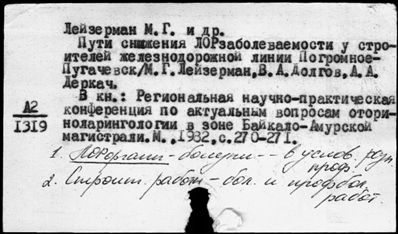 Лейзерман М. Г. и др.
Пути снижения ЛОРзаболеваемости у стро-
ителей железнодорожной линии Погромное-
Пугачевск/М.Г.Лейзерман,В.А.Долгов,А.А.
Деркач.
В кн.: Региональная научно-практическая
конференция по актуальным вопросам отори-
ноларингологии в зоне Байкало-Амурской
магистрали.М.,1982,с.270-271.
А2
1319
1. ЛОРорганы - болезни -- в услов. разн.
проф.
2. Строит. работ - бол. и профбол.
работ.